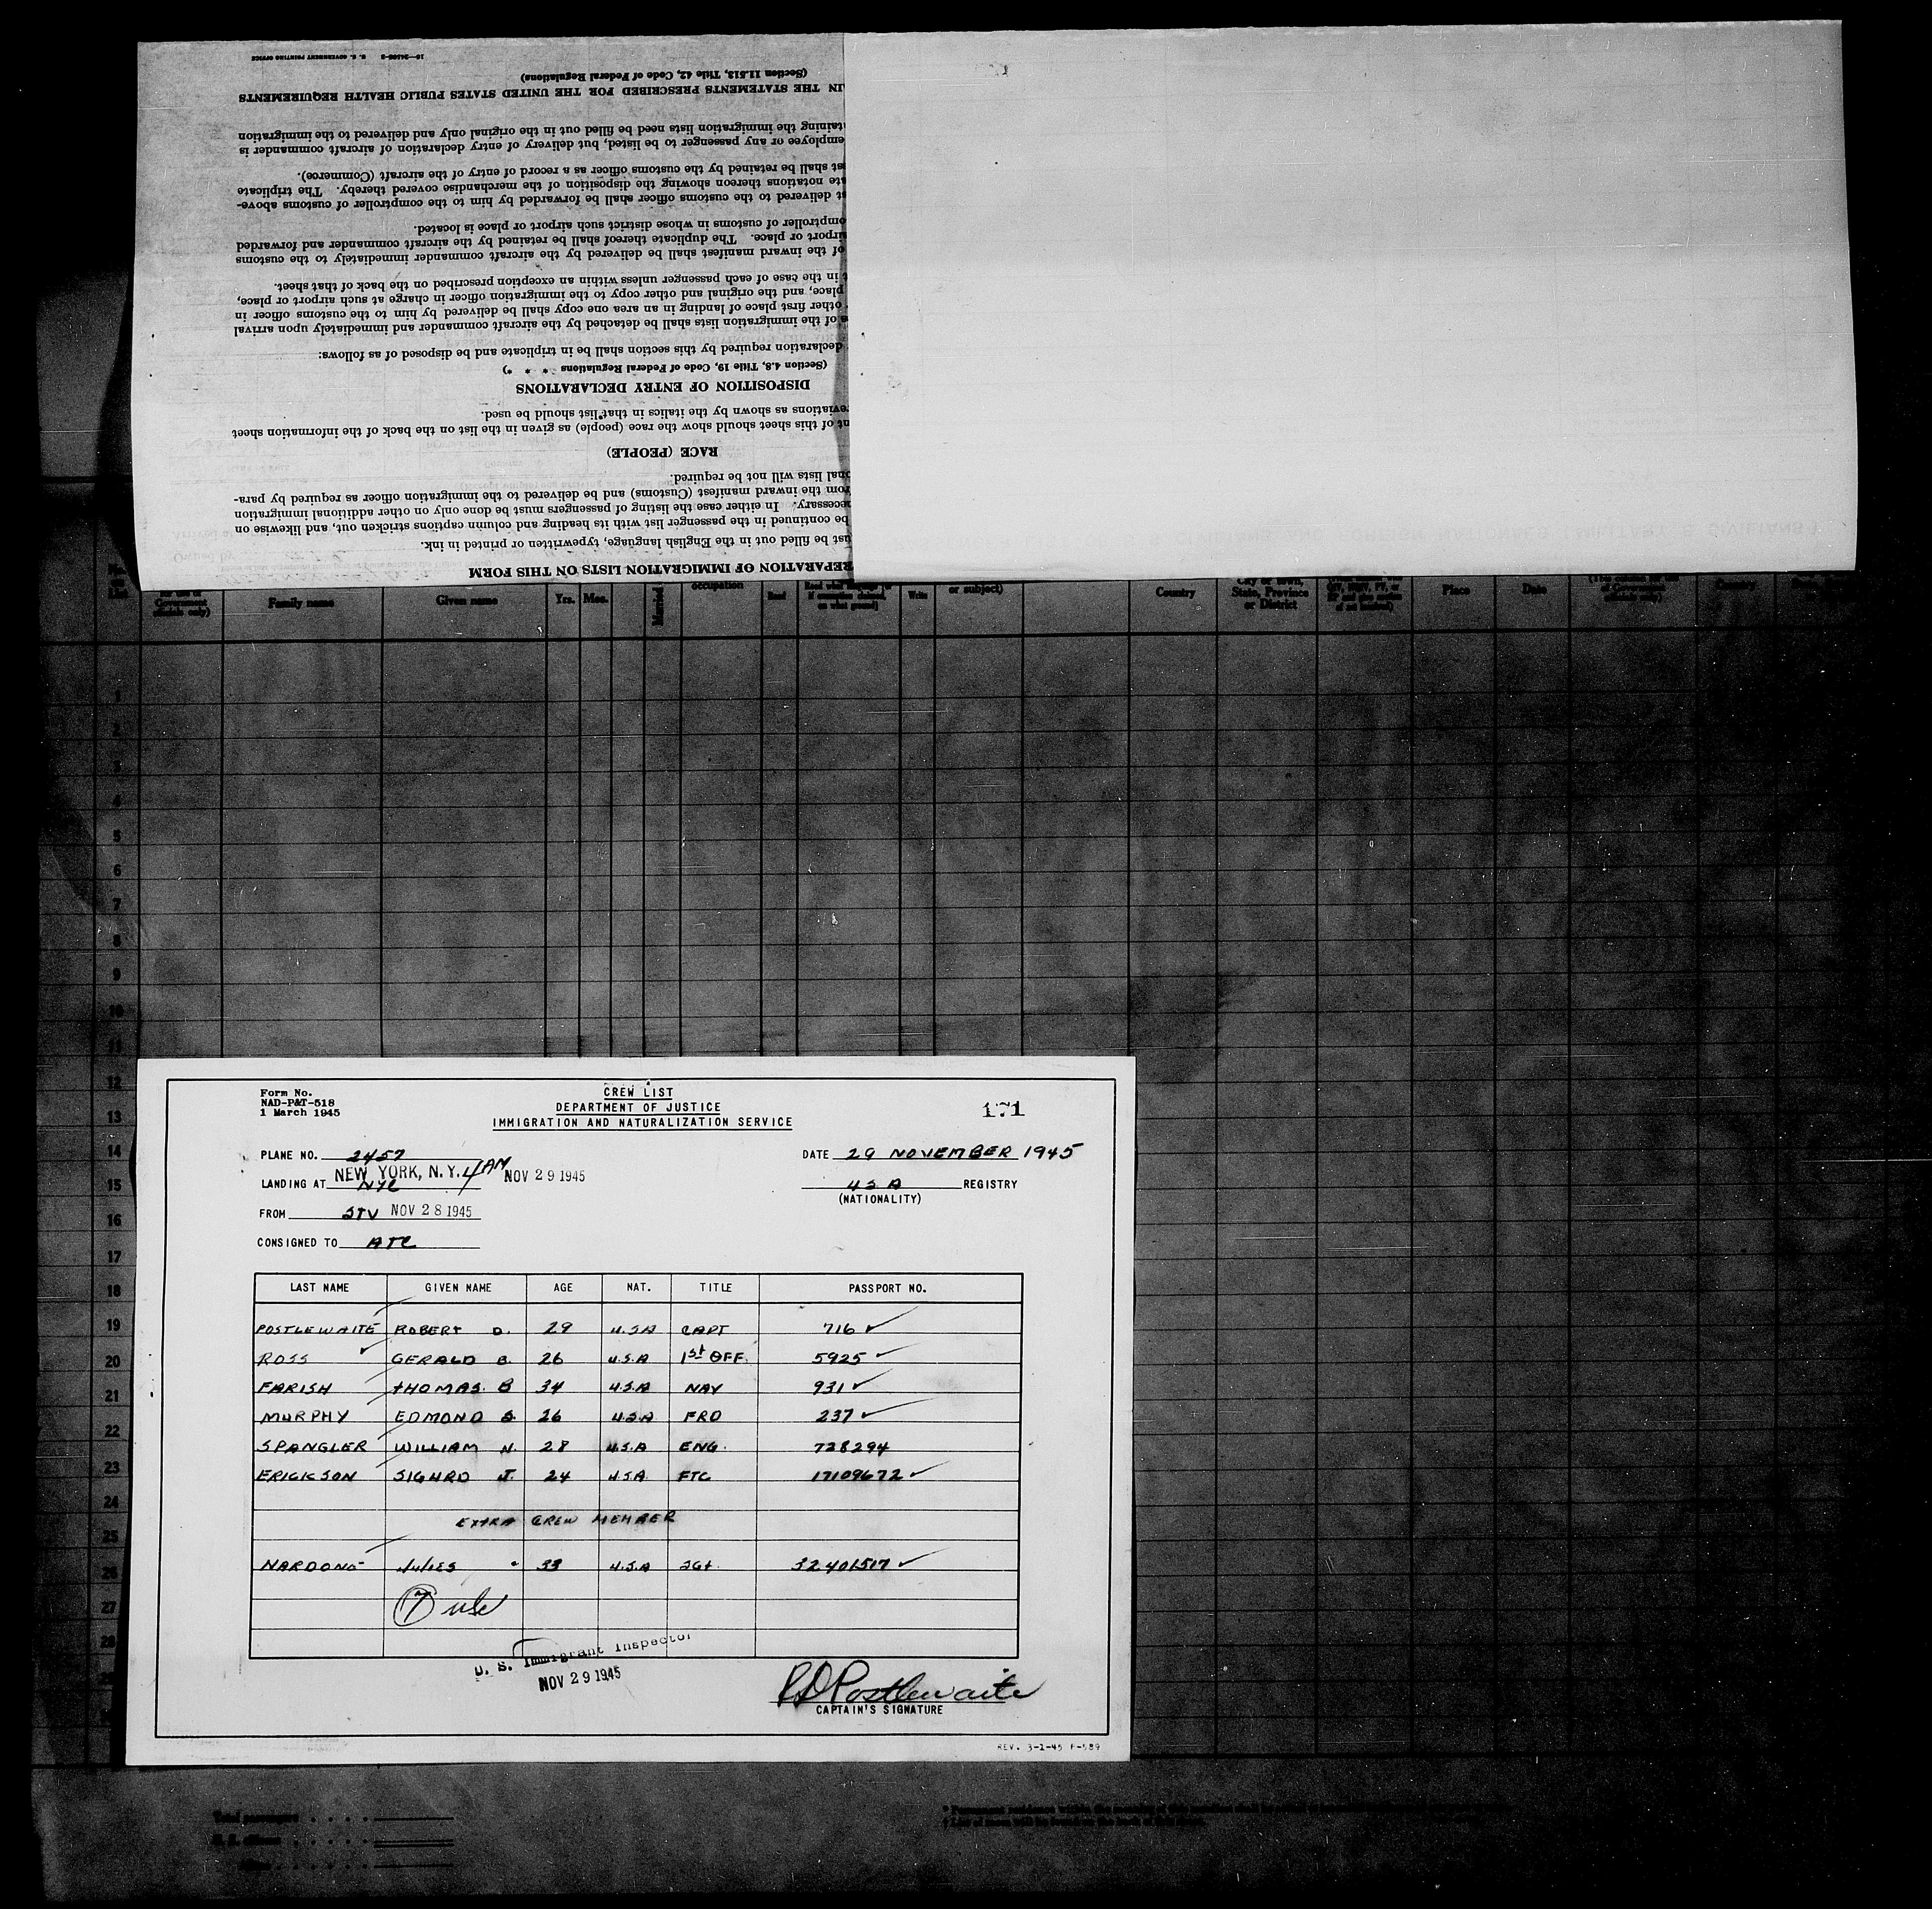 16—24166-2 U. S. GOVERNMENT PRINTING OFFICE
(Section 11.513, Title 42, Code of Federal Regulations)
IN THE STATEMENTS PRESCRIBED FOR THE UNITED STATES PUBLIC HEALTH REQUIREMENTS
taining the immigration lists need be filled out in the original only and delivered to the immigration
employee or any passenger to be listed, but delivery of entry declaration of aircraft commander is
st shall be retained by the customs officer as a record of entry of the aircraft (Commerce).
ate notations thereon showing the disposition of the merchandise covered thereby. The triplicate
st delivered to the customs officer shall be forwarded by him to the comptroller of customs above-
omptroller of customs in whose district such airport or place is located.
airport or place. The duplicate thereof shall be retained by the aircraft commander and forwarded
of the inward manifest shall be delivered by the aircraft commander immediately to the customs
t in the case of each passenger unless within an exception prescribed on the back of that sheet.
place, and the original and other copy to the immigration officer in charge at such airport or place,
other first place of landing in an area one copy shall be delivered by him to the customs officer in
s of the immigration lists shall be detached by the aircraft commander and immediately upon arrival
declaration required by this section shall be in triplicate and be disposed of as follows:
(Section 4.8, Title 19, Code of Federal Regulations * * *)
DISPOSITION OF ENTRY DECLARATIONS
reviations as shown by the italics in that list should be used.
nt of this sheet should show the race (people) as given in the list on the back of the information sheet
RACE (PEOPLE)
onal lists will not be required.
from the inward manifest (Customs) and be delivered to the immigration officer as required by para-
ecessary. In either case the listing of passengers must be done only on other additional immigration
be continued in the passenger list with its heading and column captions stricken out, and likewise on
ust be filled out in the English language, typewritten or printed in ink.
REPARATION OF IMMIGRATION LISTS ON THIS FORM
Family name Given name Yrs. Mos. Married occupation Read Write or subject) Country City or town, State, Province or District Place Date Country
1
2
3
4
5
6
7
8
9
10
11
12
13
14
15
16
17
18
19
20
21
22
23
24
25
26
27
28
Form No.
NAD-P&T-518
1 March 1945
CREW LIST
DEPARTMENT OF JUSTICE
IMMIGRATION AND NATURALIZATION SERVICE
171
PLANE NO. 2457
DATE 29 NOVEMBER 1945
NEW YORK, N.Y. 4AM NOV 29 1945
LANDING AT NYC
USA REGISTRY
(NATIONALITY)
FROM STV NOV 28 1945
CONSIGNED TO ATC
LAST NAME GIVEN NAME AGE NAT. TITLE PASSPORT NO.
POSTLEWAITE ROBERT D. 29 U.S.A CAPT 716
ROSS GERALD B. 26 U.S.A 1st OFF. 5925
FARISH THOMAS. B 34 U.S.A NAV 931
MURPHY EDMOND S. 26 U.S.A FRO 237
SPANGLER WILLIAM N. 28 U.S.A ENG. 728294
ERICKSON SIGURD J. 24 U.S.A. FTC 17109672
EXTRA CREW MEMBER
NARDONE Jules 33 U.S.A SGT. 32401517
7 usc
U. S. Immigrant Inspector
NOV 29 1945
RD Postlewaite
CAPTAIN'S SIGNATURE
REV. 3-1-45 P-589
Total passengers